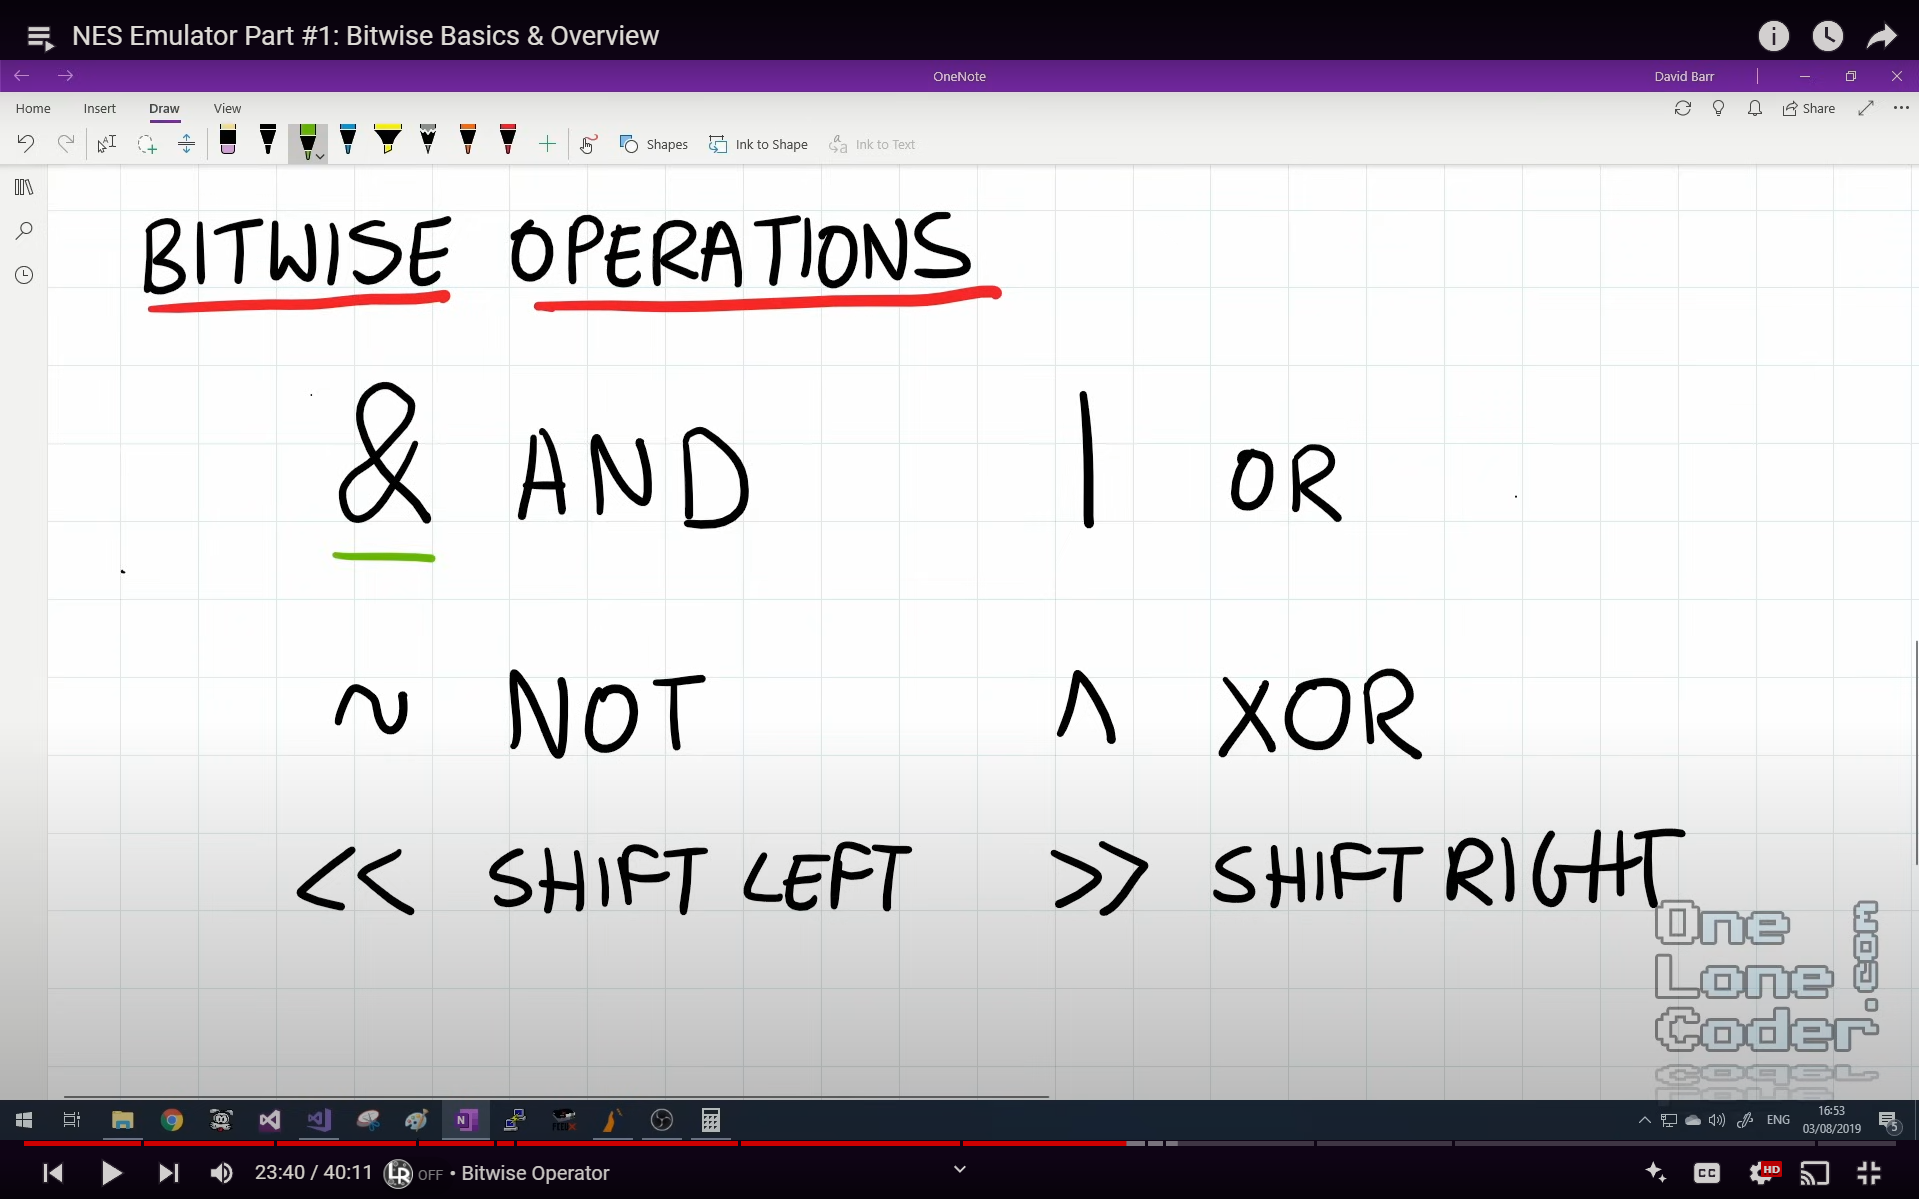 NES Emulator Part #1: Bitwise Basics & Overview
OneNote
David Barr
Home Insert Draw View
Share
Shapes Ink to Shape Ink to Text
BITWISE OPERATIONS
& AND | OR
~ NOT ^ XOR
<< SHIFT LEFT >> SHIFT RIGHT
One
Lone
Coder
.com
ENG
16:53
03/08/2019
5
23:40 / 40:11 LR OFF • Bitwise Operator
CC
HD